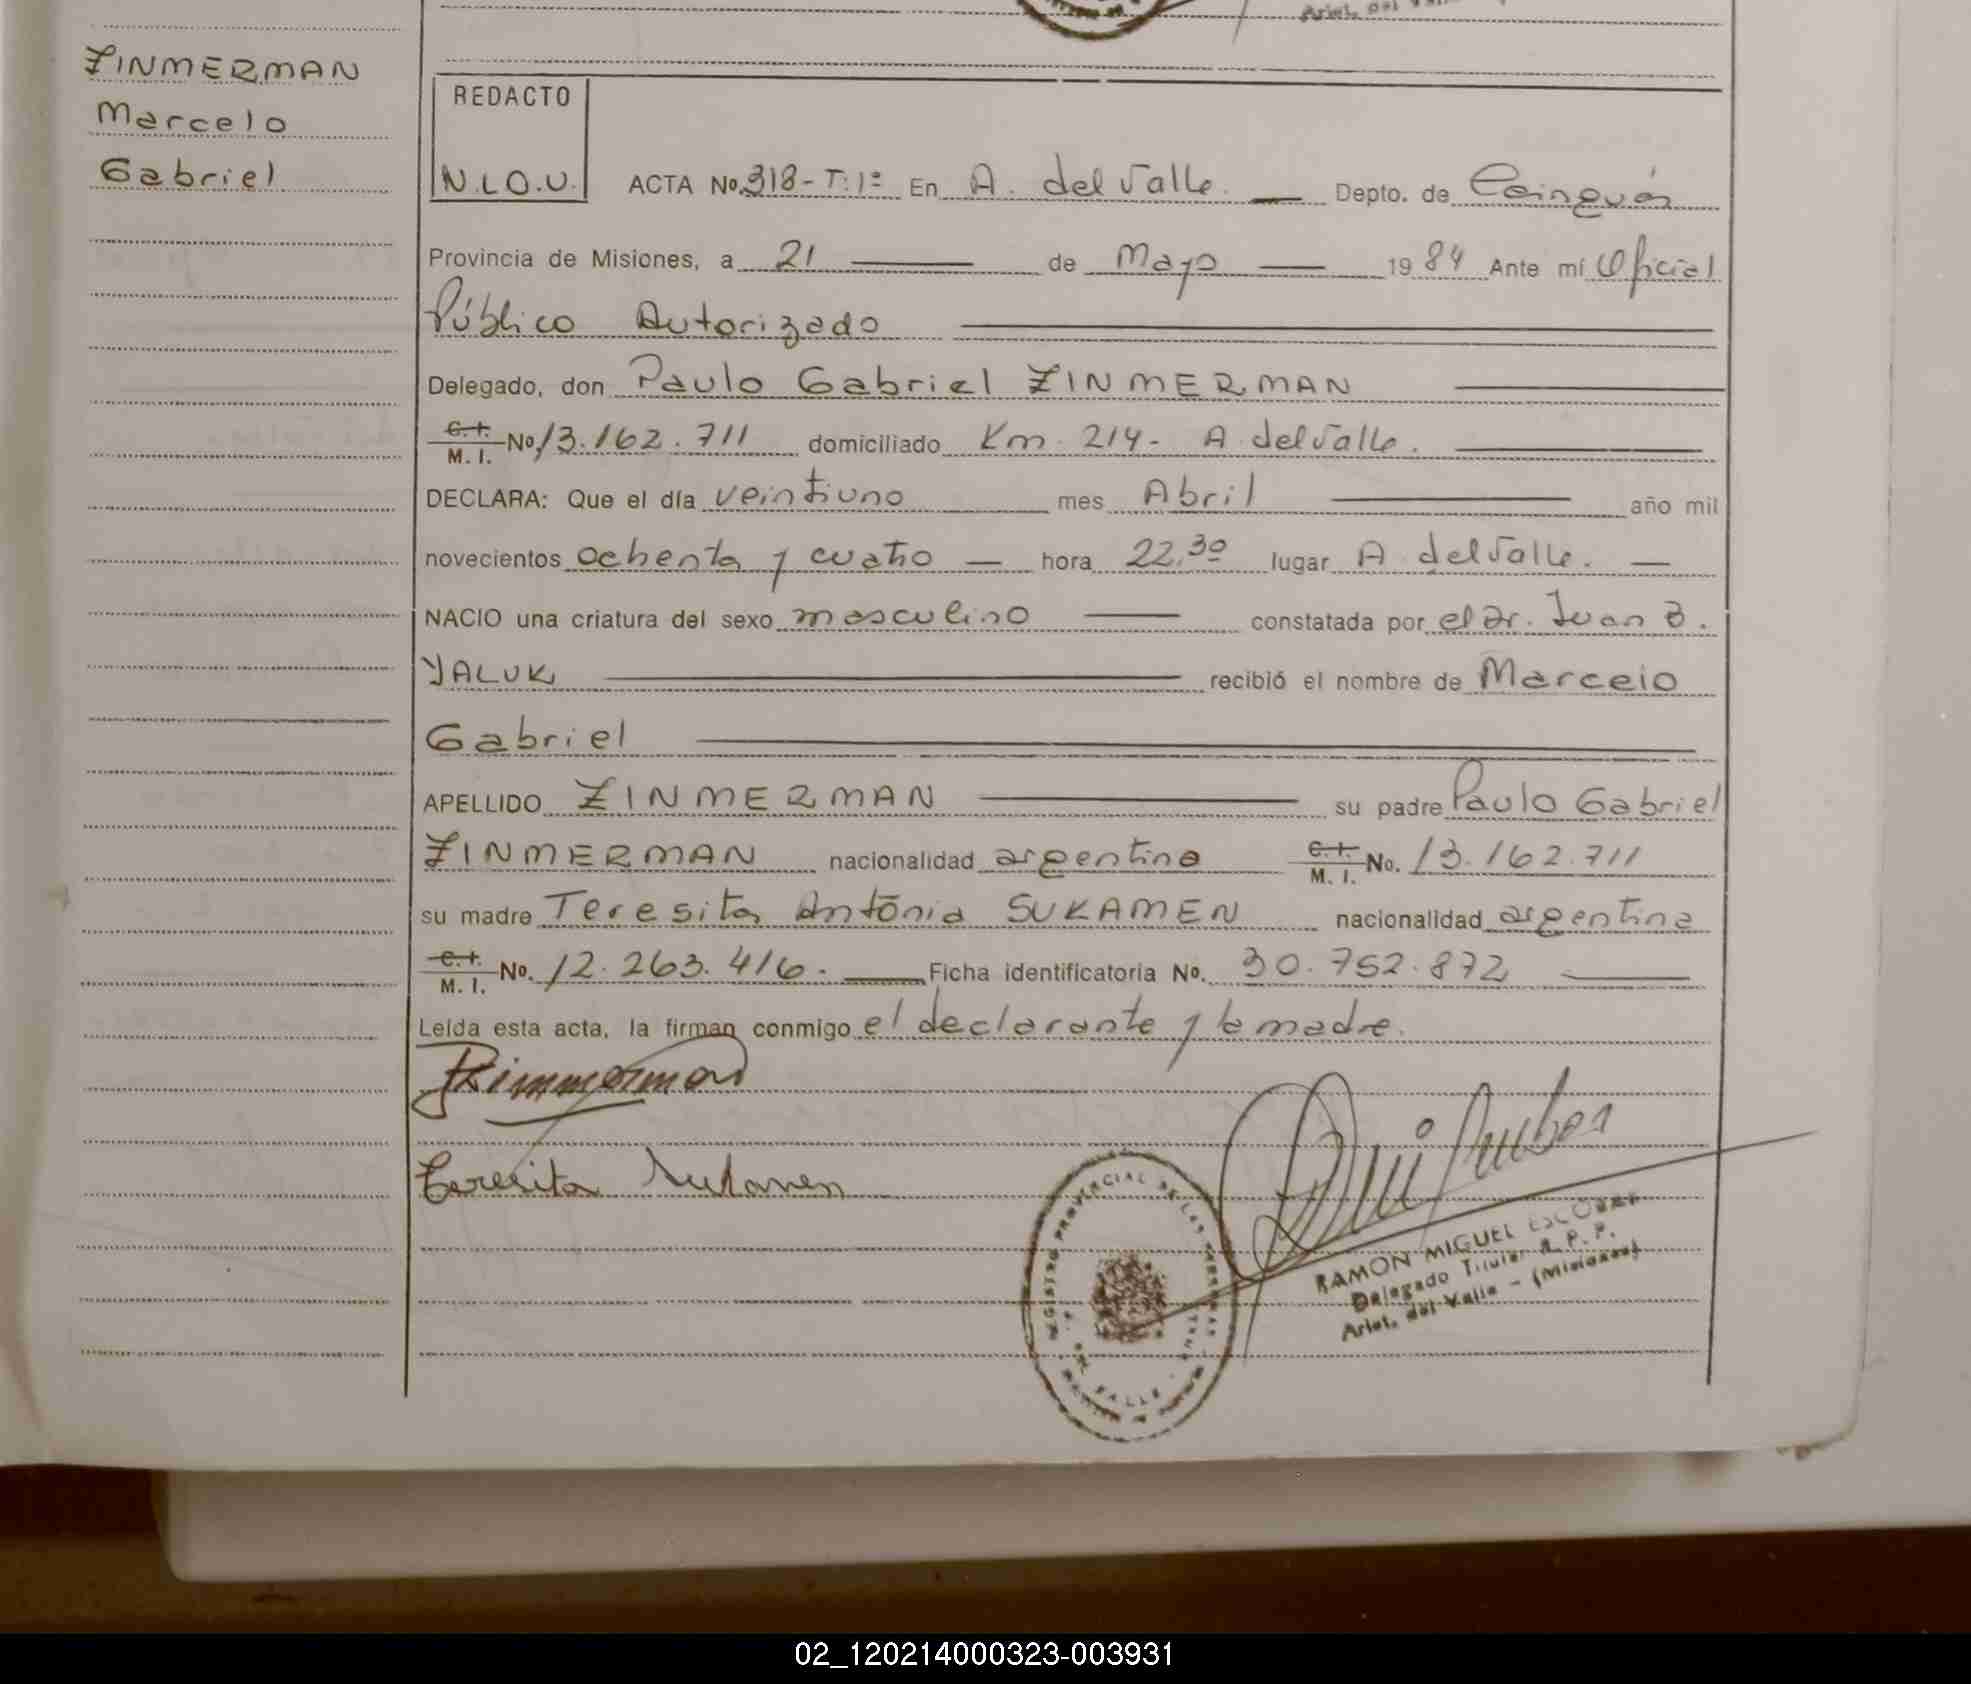 Arist. del Valle
ZINMERMAN
Marcelo
Gabriel
REDACTO
N.L.O.U. ACTA No. 318-T:1º En A. del Valle. Depto. de Cainguás
Provincia de Misiones, a 21 de Mayo 1984 Ante mí Oficial
Público Autorizado
Delegado, don Paulo Gabriel ZINMERMAN
C.I. M. I. No. 13.162.711 domiciliado Km. 214- A. del Valle.
DECLARA: Que el día veintiuno mes Abril año mil
novecientos ochenta y cuatro hora 22,30 lugar A. del Valle.
NACIO una criatura del sexo masculino constatada por el Dr. Juan B.
YALUK recibió el nombre de Marcelo
Gabriel
APELLIDO ZINMERMAN su padre Paulo Gabriel
ZINMERMAN nacionalidad argentina C.I. M. I. No. 13.162.711
su madre Teresita Antonia SUKAMEN nacionalidad argentina
C.I. M. I. No. 12.263.416. Ficha identificatoria No. 30.752.872
Leída esta acta, la firman conmigo el declarante y la madre.
Zimmerman
Teresita Sukamen
REGISTRO PROVINCIAL DE LAS PERSONAS
DEL VALLE
RAMON MIGUEL ESCOBAR
Delegado Titular R. P. P.
Arist. del Valle - (Misiones)
02_120214000323-003931